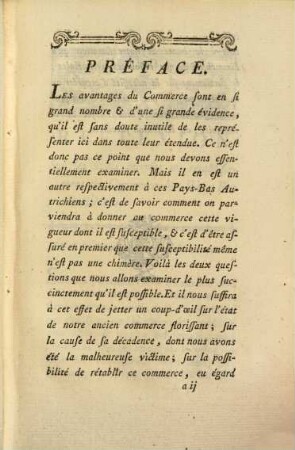 PRÉFACE.
LES avantages du Commerce sont en si
grand nombre & d'une si grande évidence,
qu'il est sans doute inutile de les repré-
senter ici dans toute leur étendue. Ce n'est
donc pas ce point que nous devons essen-
tiellement examiner. Mais il en est un
autre respectivement à ces Pays-Bas Au-
trichiens ; c'est de savoir comment on par-
viendra à donner au commerce cette vi-
gueur dont il est susceptible, & c'est d'être as-
suré en premier que cette susceptibilité même
n'est pas une chimère. Voilà les deux ques-
tions que nous allons examiner le plus suc-
cinctement qu'il est possible. Et il nous suffira
à cet effet de jetter un coup-d'œil sur l'état
de notre ancien commerce florissant ; sur
la cause de sa décadence, dont nous avons
été la malheureuse victime ; sur la possi-
bilité de rétablir ce commerce, eu égard
a ij